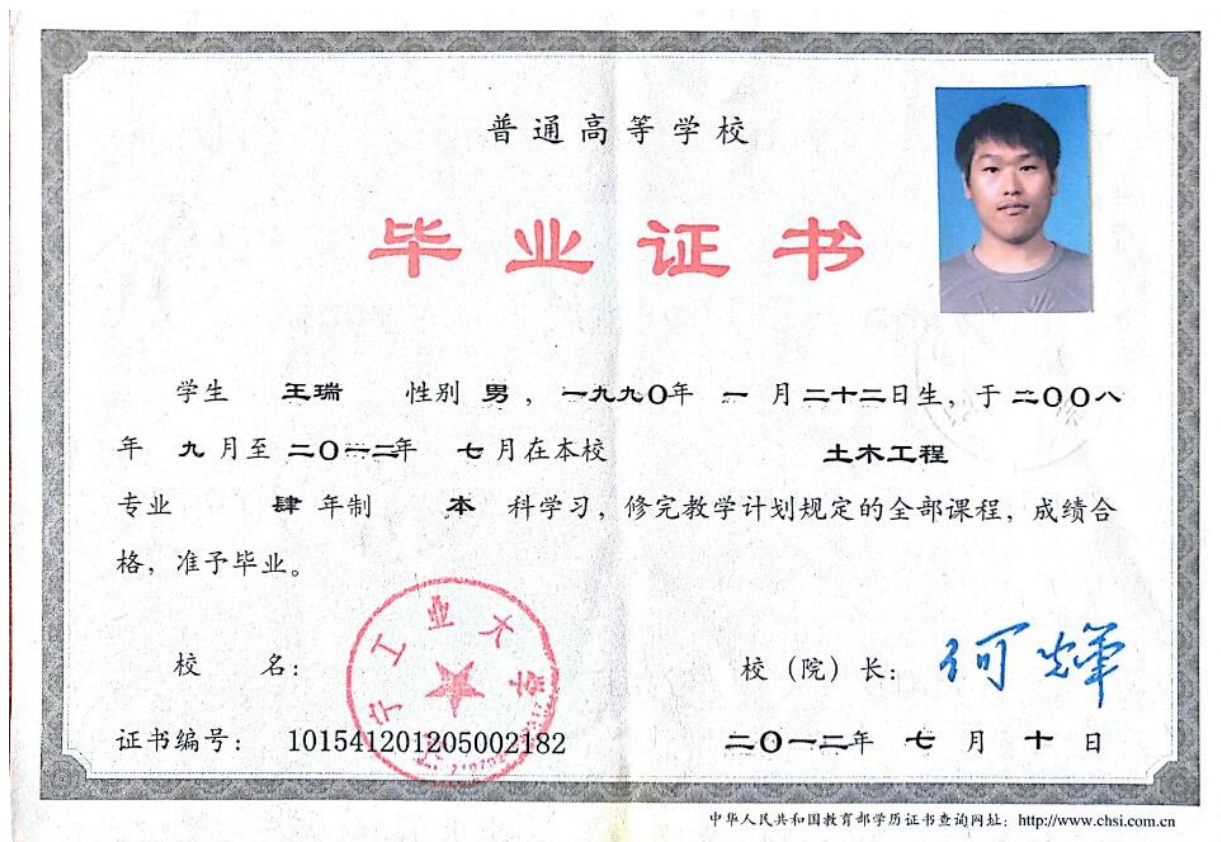 普通高等学校
毕业证书
学生 王瑞 性别 男，一九九〇年 一 月二十二日生，于二〇〇八
年 九 月至 二〇一二年 七月在本校 土木工程
专业 肆 年制 本 科学习，修完教学计划规定的全部课程，成绩合
格，准予毕业。
宁工业大学
校 名： 校（院）长：何辉
证书编号： 101541201205002182 二〇一二年 七 月 十 日
中华人民共和国教育部学历证书查询网址：http://www.chsi.com.cn